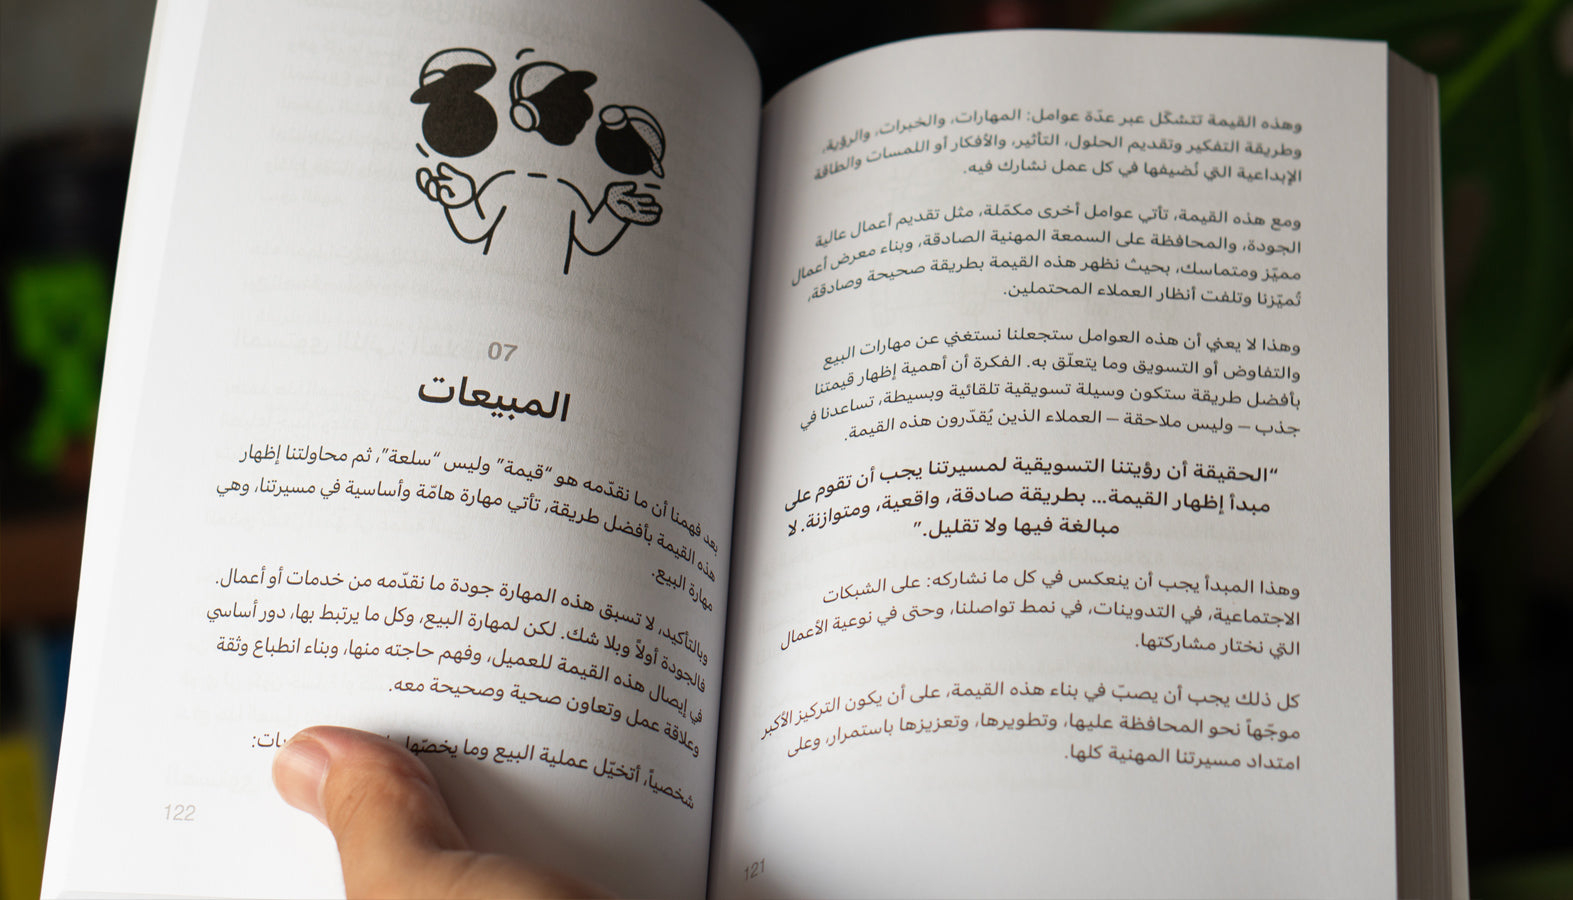 وهذه القيمة تتشكّل عبر عدّة عوامل: المهارات، والخبرات، والرؤية،
وطريقة التفكير وتقديم الحلول، التأثير، والأفكار أو اللمسات والطاقة
الإبداعية التي نُضيفها في كل عمل نشارك فيه.
ومع هذه القيمة، تأتي عوامل أخرى مكمّلة، مثل تقديم أعمال عالية
الجودة، والمحافظة على السمعة المهنية الصادقة، وبناء معرض أعمال
مميّز ومتماسك، بحيث نظهر هذه القيمة بطريقة صحيحة وصادقة،
تُميّزنا وتلفت أنظار العملاء المحتملين.
وهذا لا يعني أن هذه العوامل ستجعلنا نستغني عن مهارات البيع
والتفاوض أو التسويق وما يتعلّق به. الفكرة أن أهمية إظهار قيمتنا
بأفضل طريقة ستكون وسيلة تسويقية تلقائية وبسيطة، تساعدنا في
جذب – وليس ملاحقة – العملاء الذين يُقدّرون هذه القيمة.
“الحقيقة أن رؤيتنا التسويقية لمسيرتنا يجب أن تقوم على
مبدأ إظهار القيمة... بطريقة صادقة، واقعية، ومتوازنة. لا
مبالغة فيها ولا تقليل.”
وهذا المبدأ يجب أن ينعكس في كل ما نشاركه: على الشبكات
الاجتماعية، في التدوينات، في نمط تواصلنا، وحتى في نوعية الأعمال
التي نختار مشاركتها.
كل ذلك يجب أن يصبّ في بناء هذه القيمة، على أن يكون التركيز الأكبر
موجّهاً نحو المحافظة عليها، وتطويرها، وتعزيزها باستمرار، وعلى
امتداد مسيرتنا المهنية كلها.
121
07
المبيعات
بعد فهمنا أن ما نقدّمه هو “قيمة” وليس “سلعة”، ثم محاولتنا إظهار
هذه القيمة بأفضل طريقة، تأتي مهارة هامّة وأساسية في مسيرتنا، وهي
مهارة البيع.
وبالتأكيد، لا تسبق هذه المهارة جودة ما نقدّمه من خدمات أو أعمال.
فالجودة أولاً وبلا شك. لكن لمهارة البيع، وكل ما يرتبط بها، دور أساسي
في إيصال هذه القيمة للعميل، وفهم حاجته منها، وبناء انطباع وثقة
وعلاقة عمل وتعاون صحية وصحيحة معه.
شخصياً، أتخيّل عملية البيع وما يخصّها
122